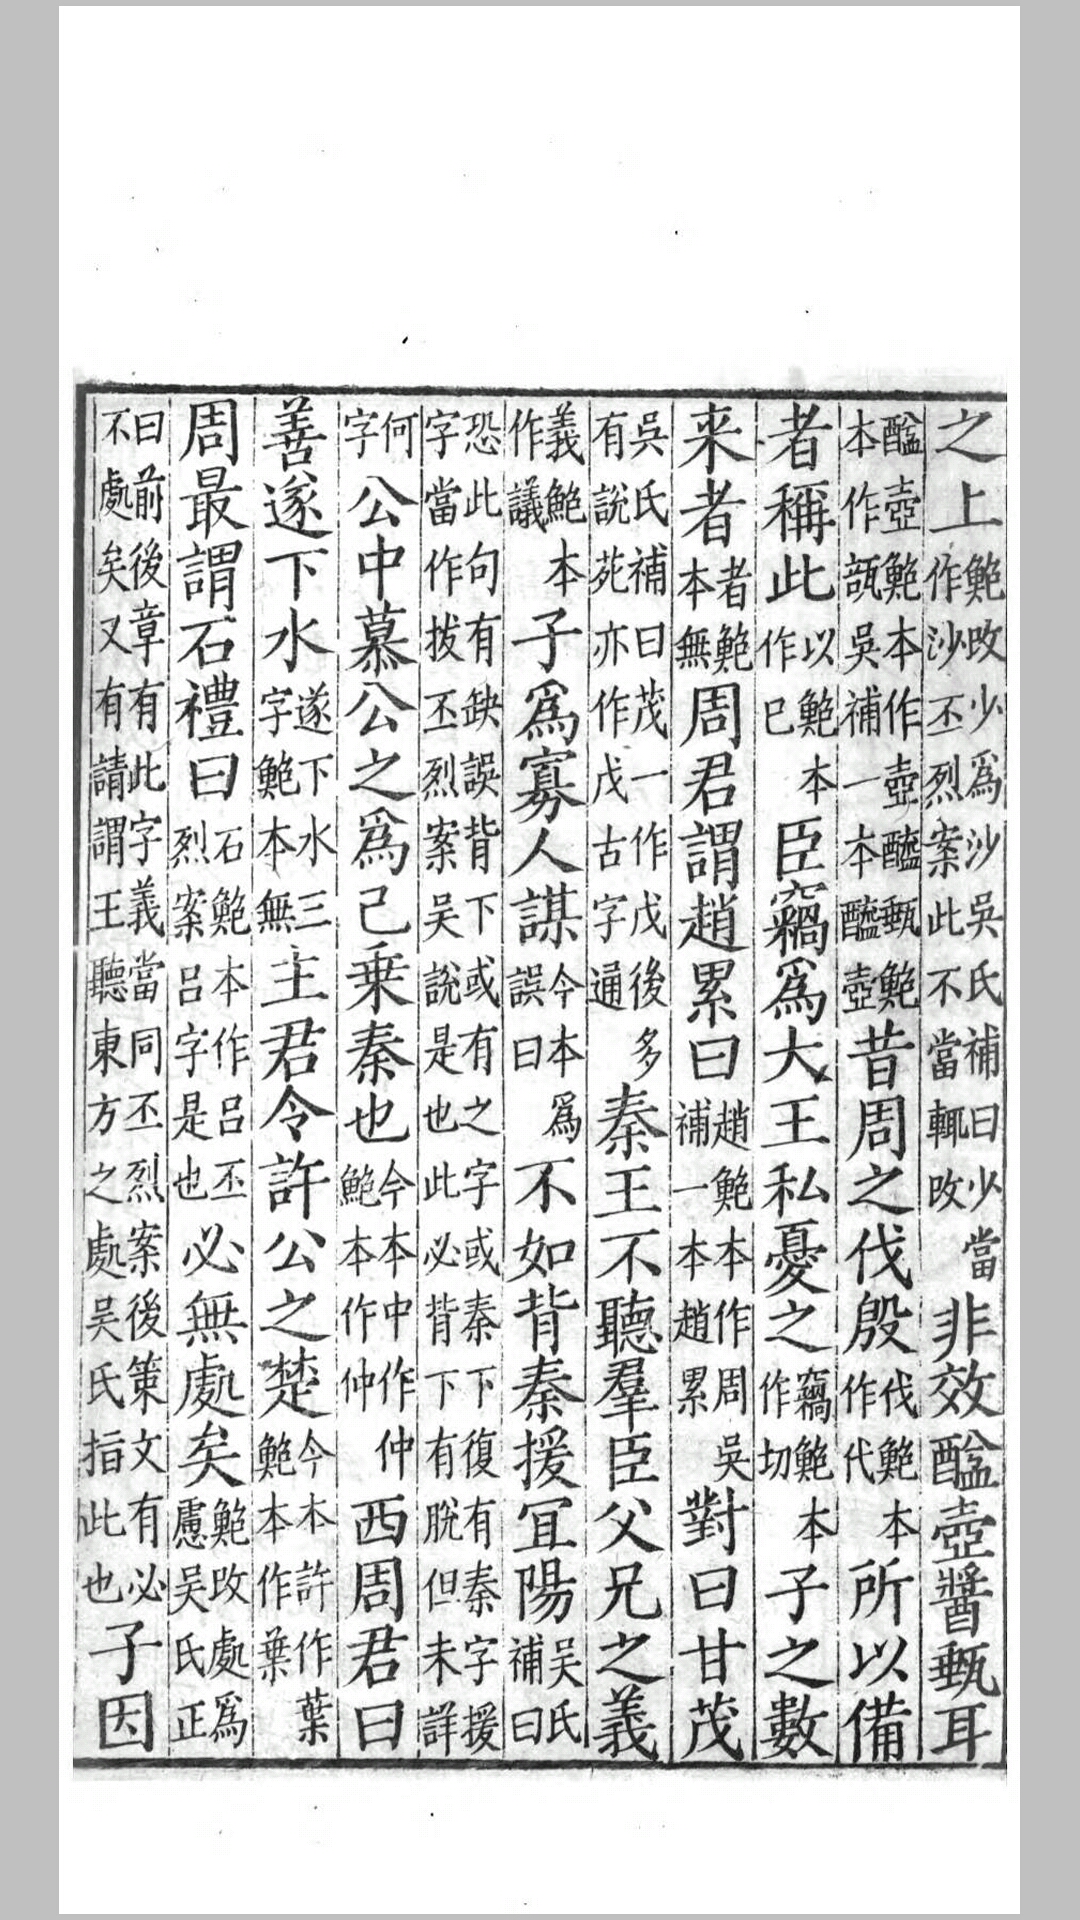 之上鮑改少爲沙吳氏補曰少當作沙丕烈案此不當輒改非效醯壺醬甀耳
醯壺鮑本作壺醯甀鮑本作瓿吳補一本醯壺昔周之伐殷伐鮑本作代所以備
者稱此以鮑本作已臣竊爲大王私憂之竊鮑本作切子之數
來者者鮑本無周君謂趙累曰趙鮑本作周吳補一本趙累對曰甘茂
吳氏補曰茂一作戊後多有說苑亦作戊古字通秦王不聽羣臣父兄之義
義鮑本作議子爲寡人謀今本爲誤曰不如背秦援宜陽吳氏補曰
恐此句有缺誤背下或有之字或秦下復有秦字援字當作拔丕烈案吴說是也此必背下有脫但未詳
何字公中慕公之爲己乗秦也今本中作仲鮑本作仲西周君曰
善遂下水遂下水三字鮑本無主君令許公之楚今本許作葉鮑本作葉
周最謂石禮曰石鮑本作呂丕烈案吕字是也必無處矣鮑改處爲慮吴氏正
曰前後章有此字義當同丕烈案後策文有必不處矣又有請謂王聽東方之處吴氏指此也子因